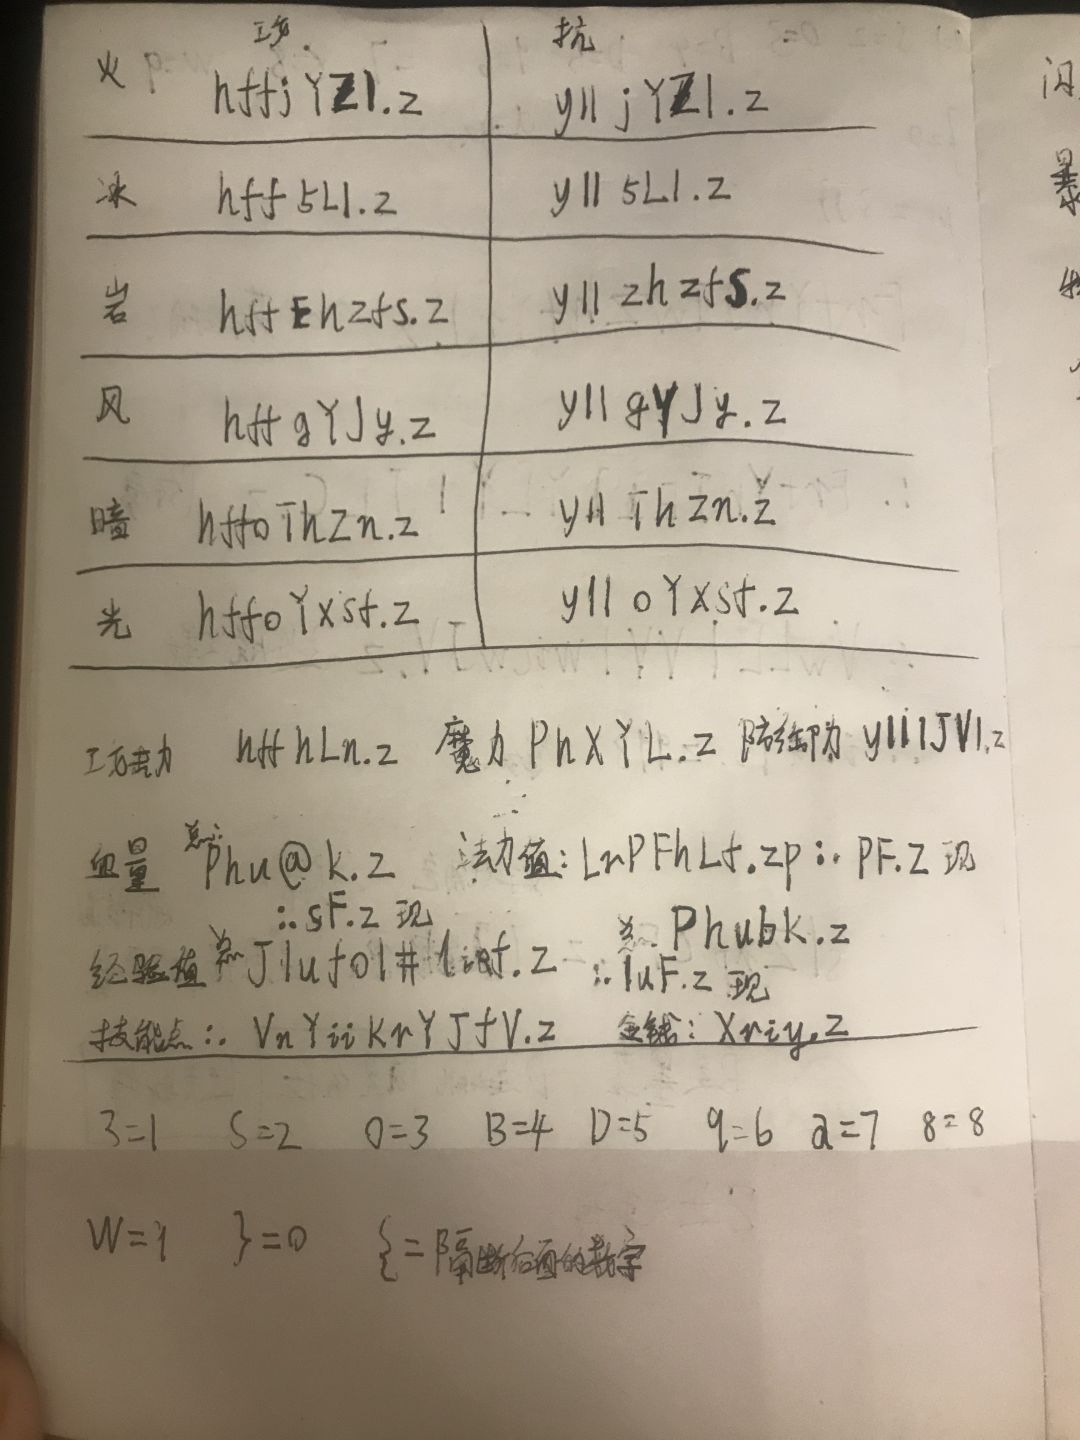 攻 抗
火 hffjYZ1.z yll jYZ1.z
冰 hff5L1.z yll 5L1.z
岩 hffEhzfs.z yll zhzfS.z
风 hffgYJy.z yll gYJy.z
暗 hffoThZn.z yll ThZn.z
光 hffoYxsf.z yll oYxsf.z
攻击力 hffhLn.z 魔力 PhXYL.z 防御力 yll1JV1.z
血量 总∴Phu@k.z 法力值:LnPFhLf.zp∴PF.Z 现
∴sF.z 现 总∴Phubk.z
经验值 总 J1ufol# .z ∴luF.z 现
技能点∴ VnYiiKrYJfV.z 金钱:Xriy.z
3=1 S=2 O=3 B=4 D=5 q=6 a=7 8=8
W=9 }=0 {=隔断后面的数字
闪
暴